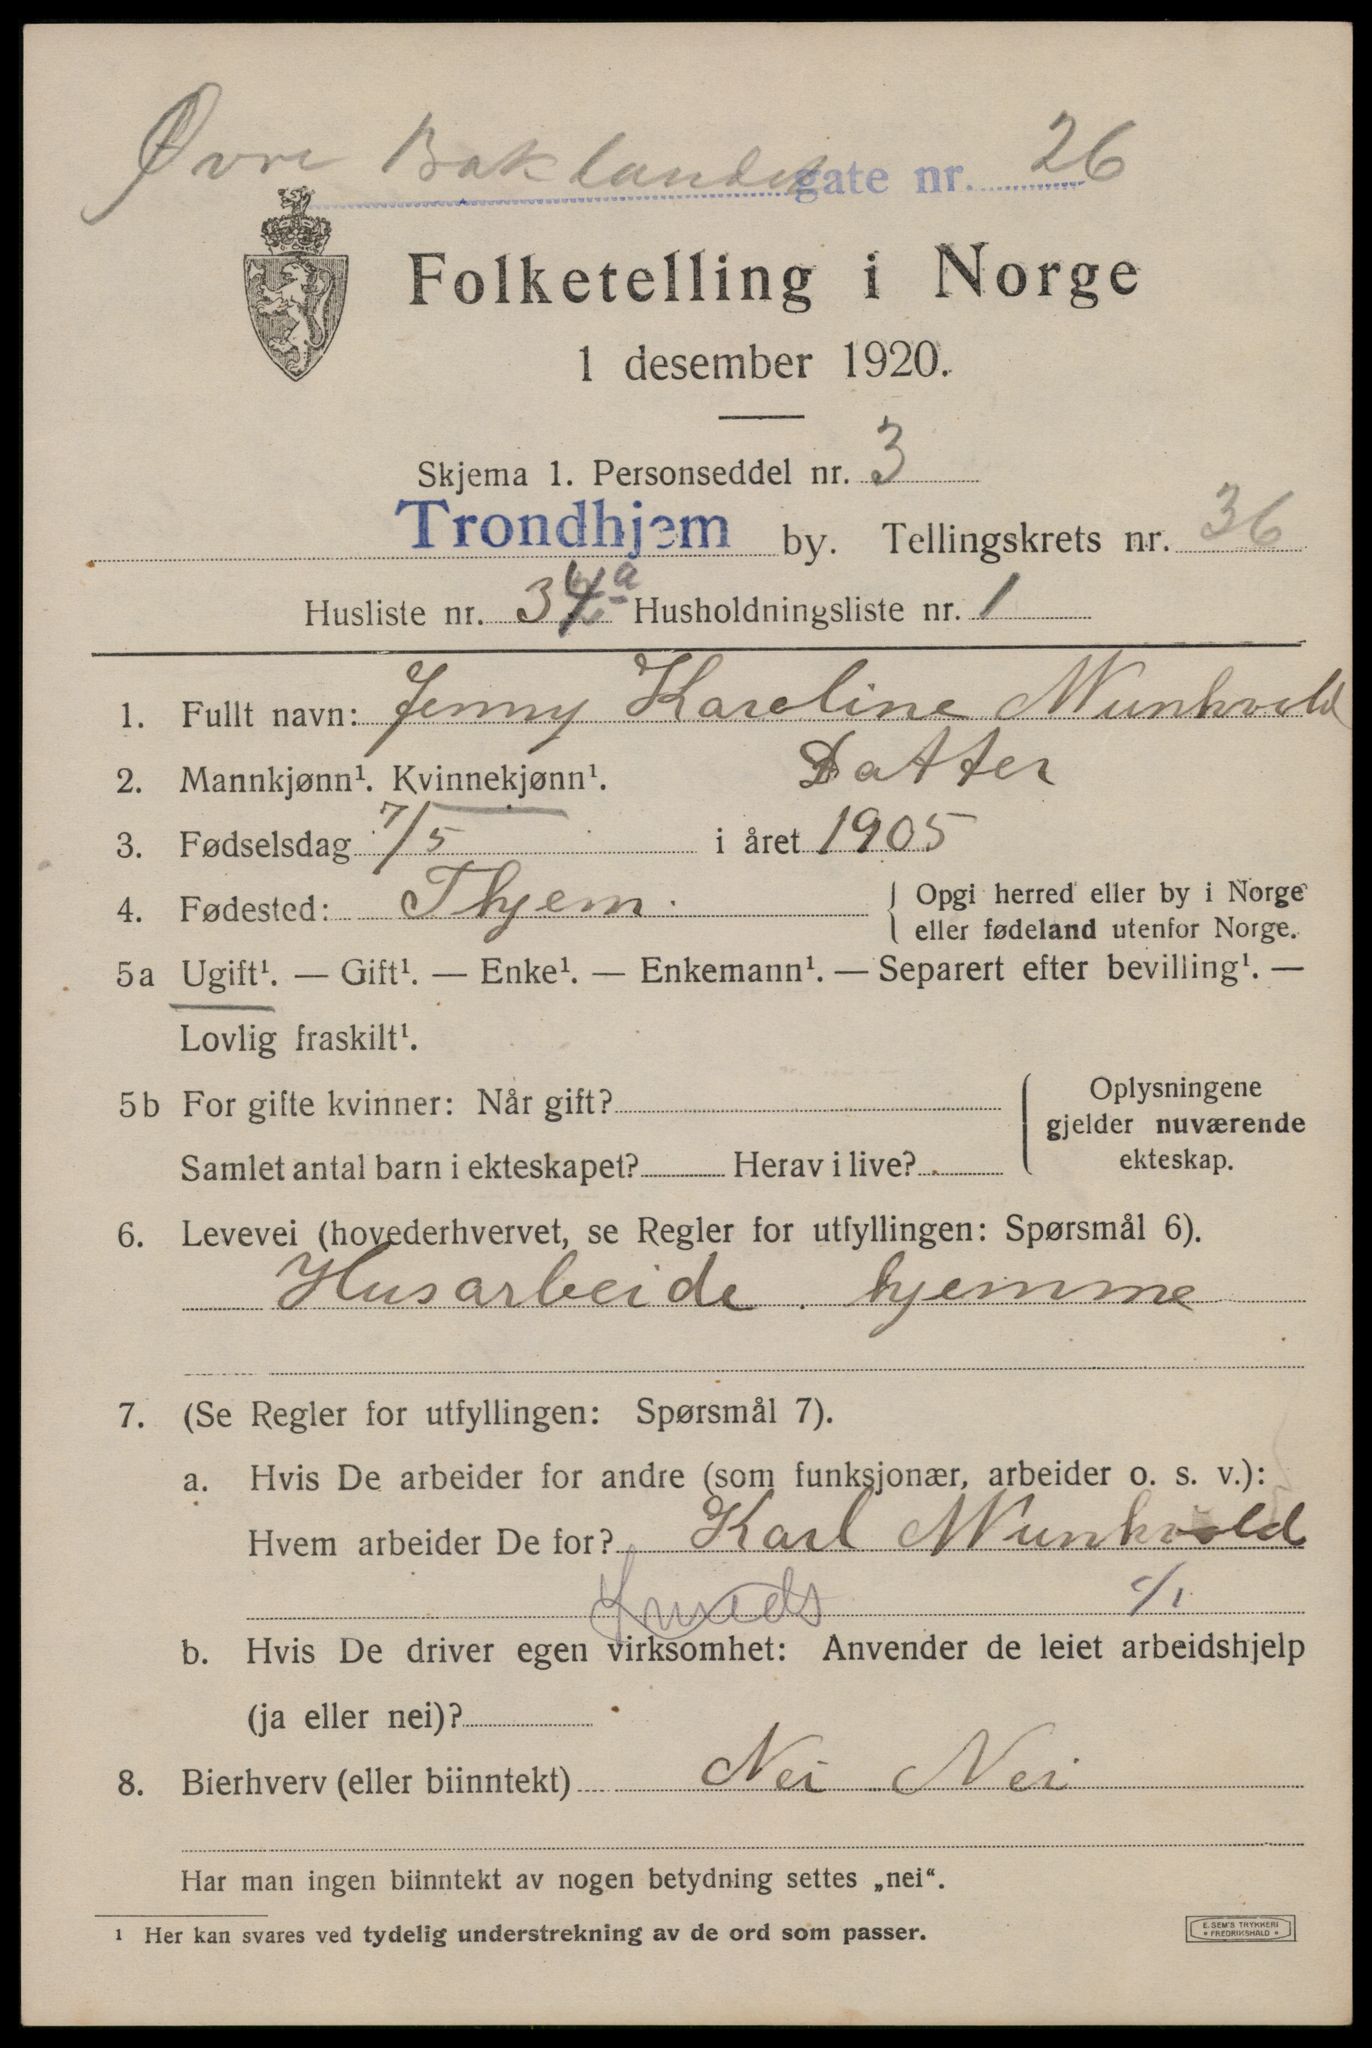 Øvre Baklandet gate nr. 26
Folketelling i Norge
1 desember 1920.
Skjema 1. Personseddel nr. 3
Trondhjem by. Tellingskrets nr. 36
Husliste nr. 34a Husholdningsliste nr. 1
1. Fullt navn: Jenny Karoline Munkvold
2. Mannkjønn¹. Kvinnekjønn¹. Datter
3. Fødselsdag 7/5 i året 1905
4. Fødested: Thjem. { Opgi herred eller by i Norge
eller fødeland utenfor Norge.
5a Ugift¹. — Gift¹. — Enke¹. — Enkemann¹. — Separert efter bevilling¹. —
Lovlig fraskilt¹.
5b For gifte kvinner: Når gift?
Samlet antal barn i ekteskapet? Herav i live?
{ Oplysningene
gjelder nuværende
ekteskap.
6. Levevei (hovederhvervet, se Regler for utfyllingen: Spørsmål 6).
Husarbeide. hjemme
7. (Se Regler for utfyllingen: Spørsmål 7).
a. Hvis De arbeider for andre (som funksjonær, arbeider o. s. v.):
Hvem arbeider De for? Karl Munkvold
b. Hvis De driver egen virksomhet: Anvender de leiet arbeidshjelp
(ja eller nei)?
8. Bierhverv (eller biinntekt) Nei Nei
Har man ingen biinntekt av nogen betydning settes „nei“.
¹ Her kan svares ved tydelig understrekning av de ord som passer.
E. SEM'S TRYKKERI
FREDRIKSHALD